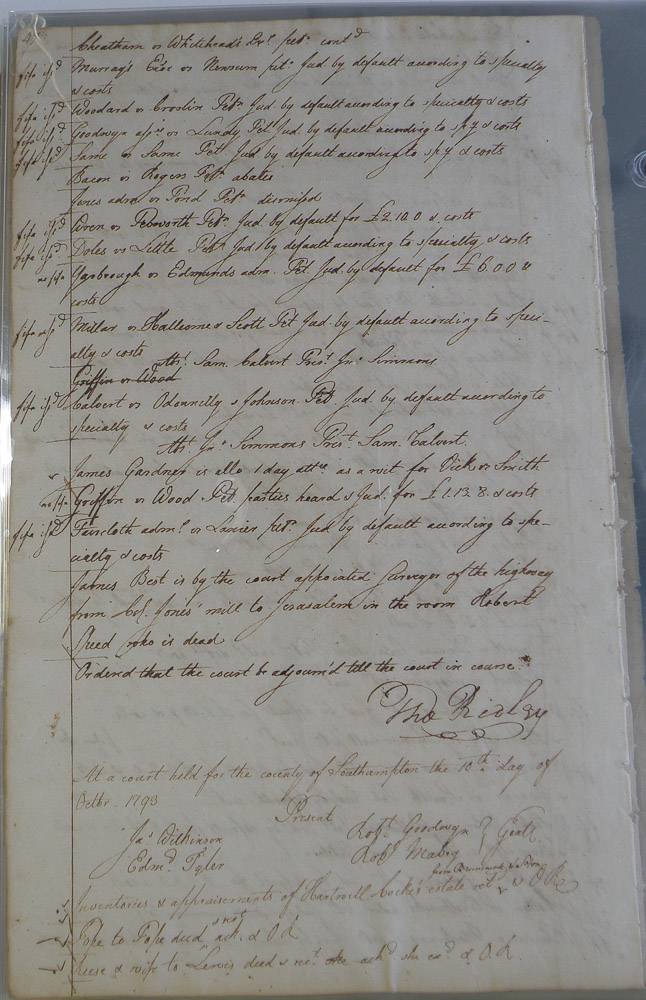 Cheatham vs Whitehead's Exr. petn. contd
fifa issd Murray's Exor vs Newsum petn. Jud by default according to specialty
& costs
fifa issd Woodard vs Croslin Petn. Jud by default according to specialty & costs
fifa issd Goodwyn assee vs Lundy Pet. Jud by default according to spy & costs
fifa issd Same vs Same Pet Jud by default according to spy & costs
Bacon vs Rogers Petn. abates
Jones adm vs Pond Petn. dismissed
fifa issd Wren vs Pebworth Petn. Jud. by default for £2.10.0 & costs
fifa issd Doles vs Little Petn. Jud by default according to specialty & costs
no fifa Yarbrough vs Edmunds adm. Pet Jud. by default for £6.0.0 &
costs
fifa issd Millar vs & Scott Pet Jud. by default according to speci-
alty & costs
Abst. Sam. Calvert Prest. Jno. Simmons
Griffin vs Wood
fifa issd Calvert vs Odonnelly & Johnson Pet. Jud. by default according to
specialty & costs
Abst. Jno. Simmons Prest. Sam. Calvert.
James Gardner is allo 1 day attce. as a wit for Vick vs Smith
no fifa Griffin vs Wood Pet. parties heard & Jud. for £1.13.8. & costs
fifa issd Faircloth adml. vs Lanier petn. Jud by default according to spe-
cialty & costs
James Best is by the court appointed Surveyor of the highway
from Col. Jones' mill to Jerusalem in the room Robert
Speed who is dead
Ordered that the court be adjourn'd till the court in course.
Tho Ridley
At a court held for the county of Southampton the 10th day of
Octbr. 1793
Present
Jas. Wilkinson Robt. Goodwyn } Gent
Edmd. Tyler Robt. Mabry
from Brunswick
Inventories & appraisements of Hartwell Cocke's estate ret & O R
Pope to Pope deed & not ack. & O R
& wife to Lewis deed & not. ackd she exd & O. R.